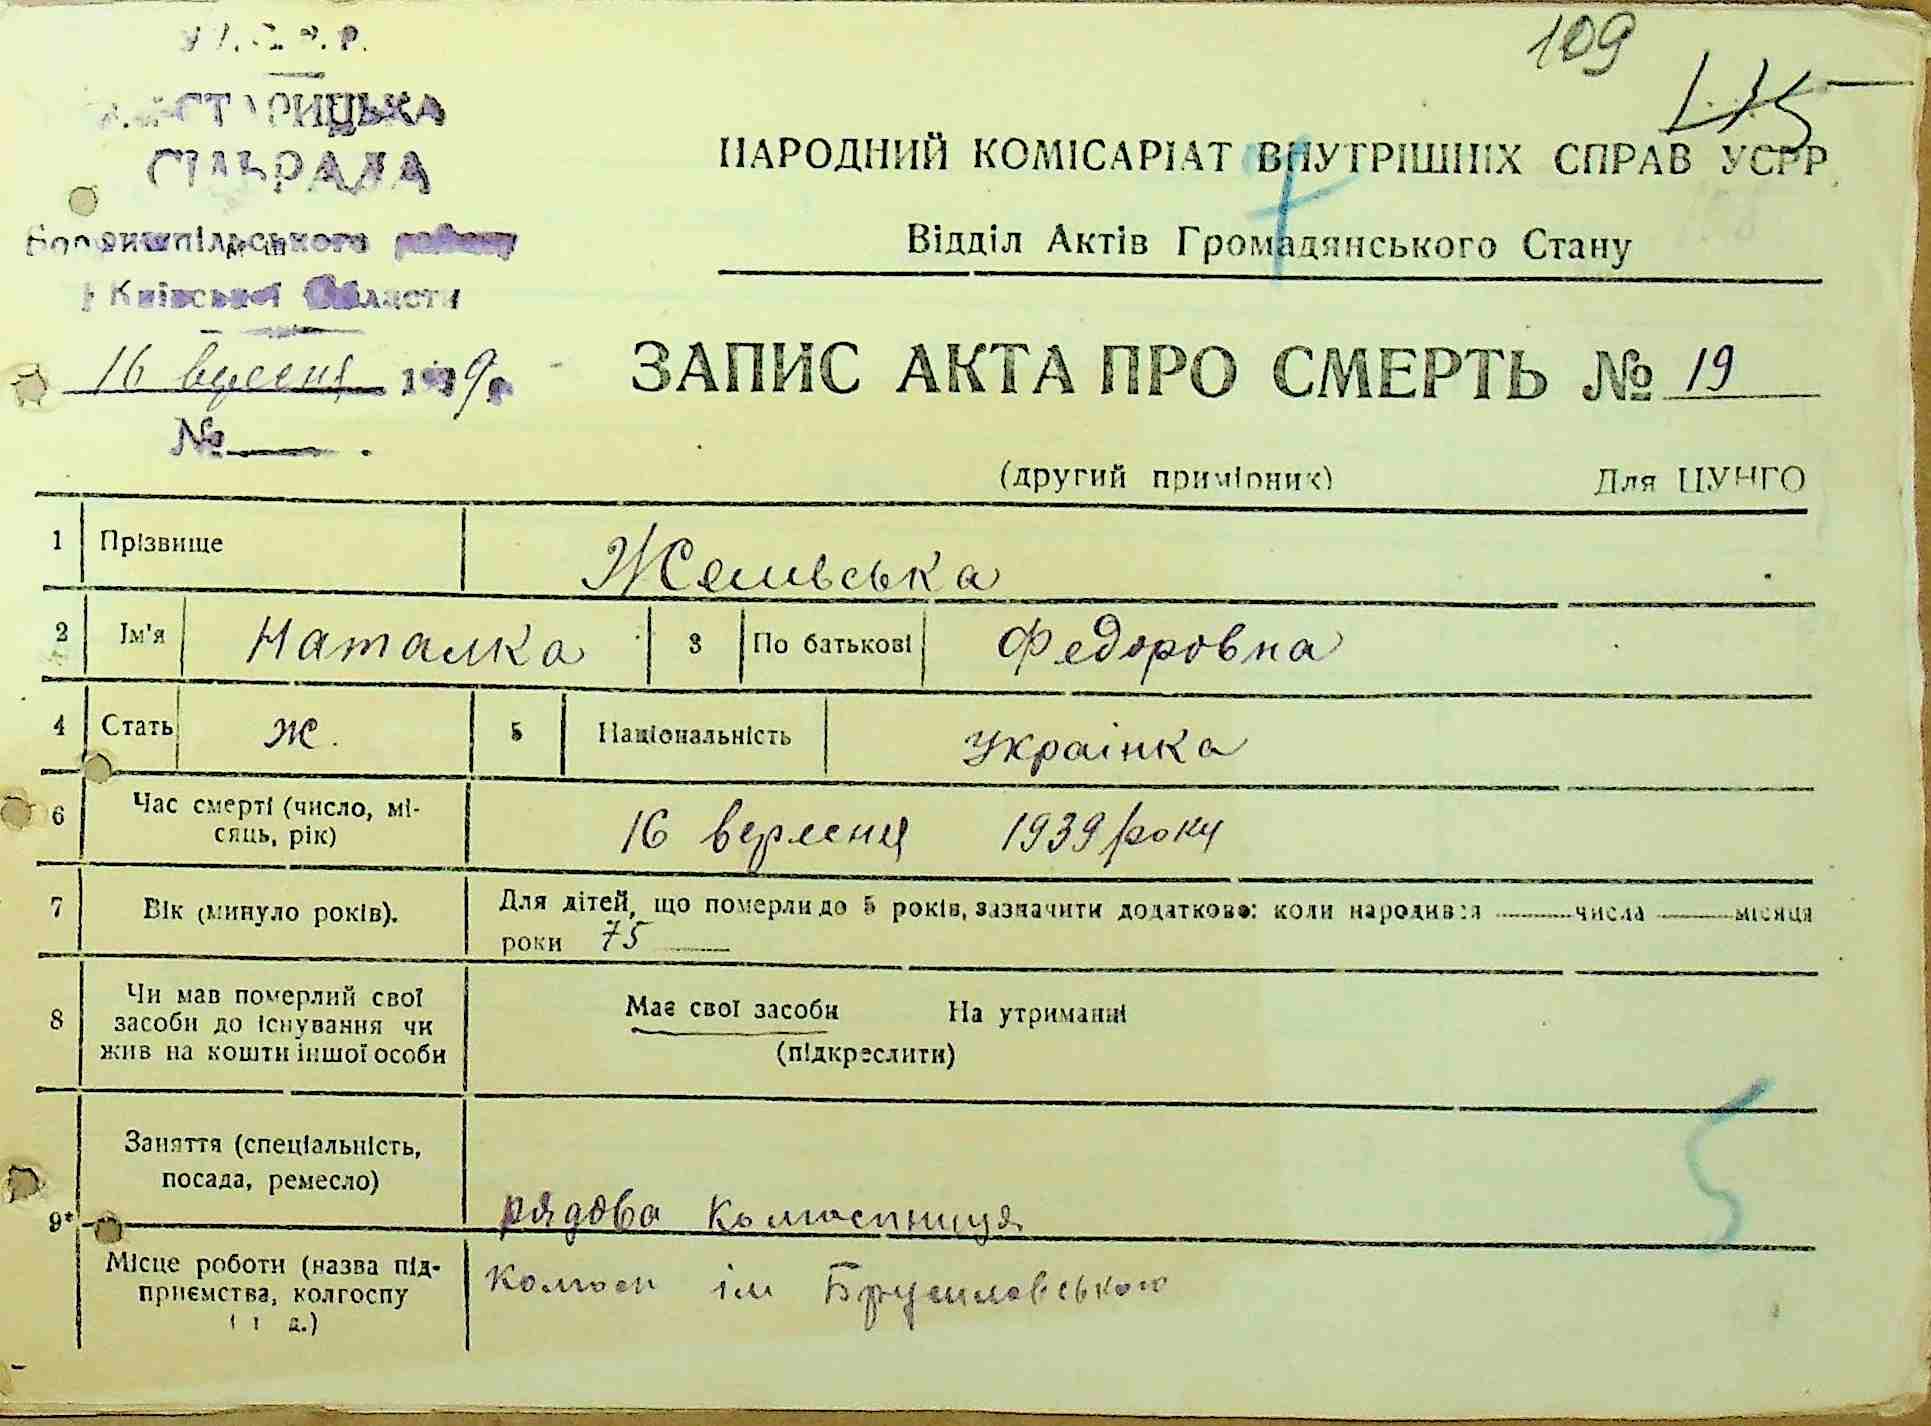 109
СІЛЬРАДА
Бориспільського району
Київської Области
16 вересня 1939р.
№
НАРОДНИЙ КОМІСАРІАТ ВНУТРІШНІХ СПРАВ УСРР
Відділ Актів Громадянського Стану
ЗАПИС АКТА ПРО СМЕРТЬ № 19
(другий примірник) Для ЦУНГО
1 Прізвище
2 Ім'я Наталка 3 По батькові Федоровна
4 Стать ж. 5 Національність українка
6 Час смерті (число, мі-
сяць, рік) 16 вересня 1939 року
7 Вік (минуло років). Для дітей, що померли до 5 років, зазначити додатково: коли народився числа місяця
роки 75
8 Чи мав померлий свої
засоби до існування чи
жив на кошти іншої особи
Має свої засоби На утриманні
(підкреслити)
9* Заняття (спеціальність,
посада, ремесло)
рядова колгоспниця
Місце роботи (назва під-
приємства, колгоспу
і т д.)
колгосп ім